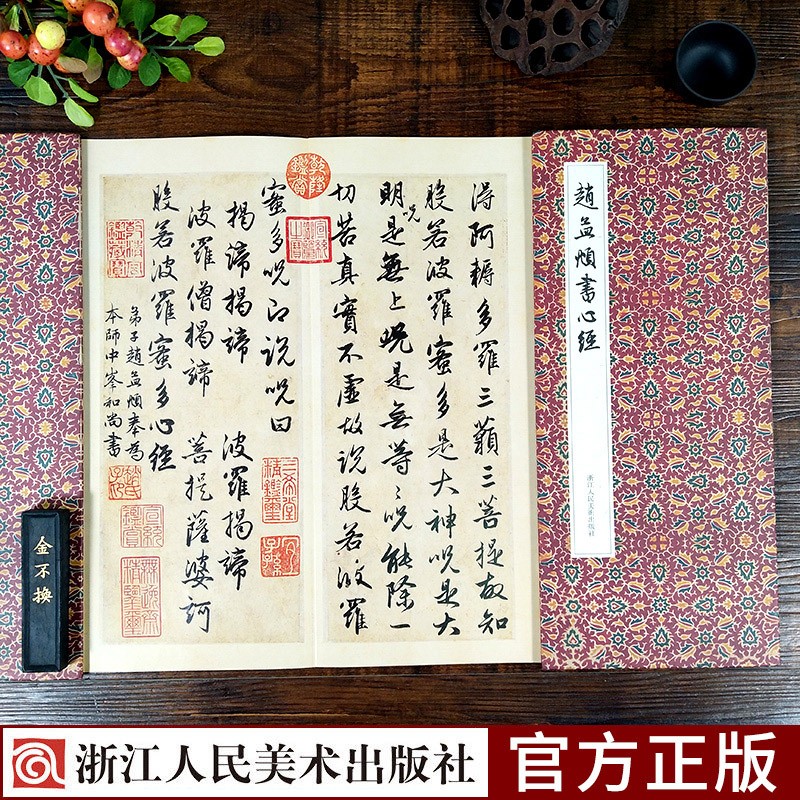 趙孟頫書心經
浙江人民美术出版社
得阿耨多羅三藐三菩提故知
般若波羅蜜多是大神呪是大
明呪是無上呪是無等〻呪能除一
切苦真實不虛故說般若波羅
蜜多呪即說呪曰
揭諦揭諦 波羅揭諦
波羅僧揭諦 菩提薩婆訶
般若波羅蜜多心經
弟子趙孟頫奉為
本師中峯和尚書
乾隆鑑賞
三希堂精鑑璽
宜子孫
宣統鑑賞
無逸齋精鑑璽
金不換
浙江人民美术出版社
官方正版